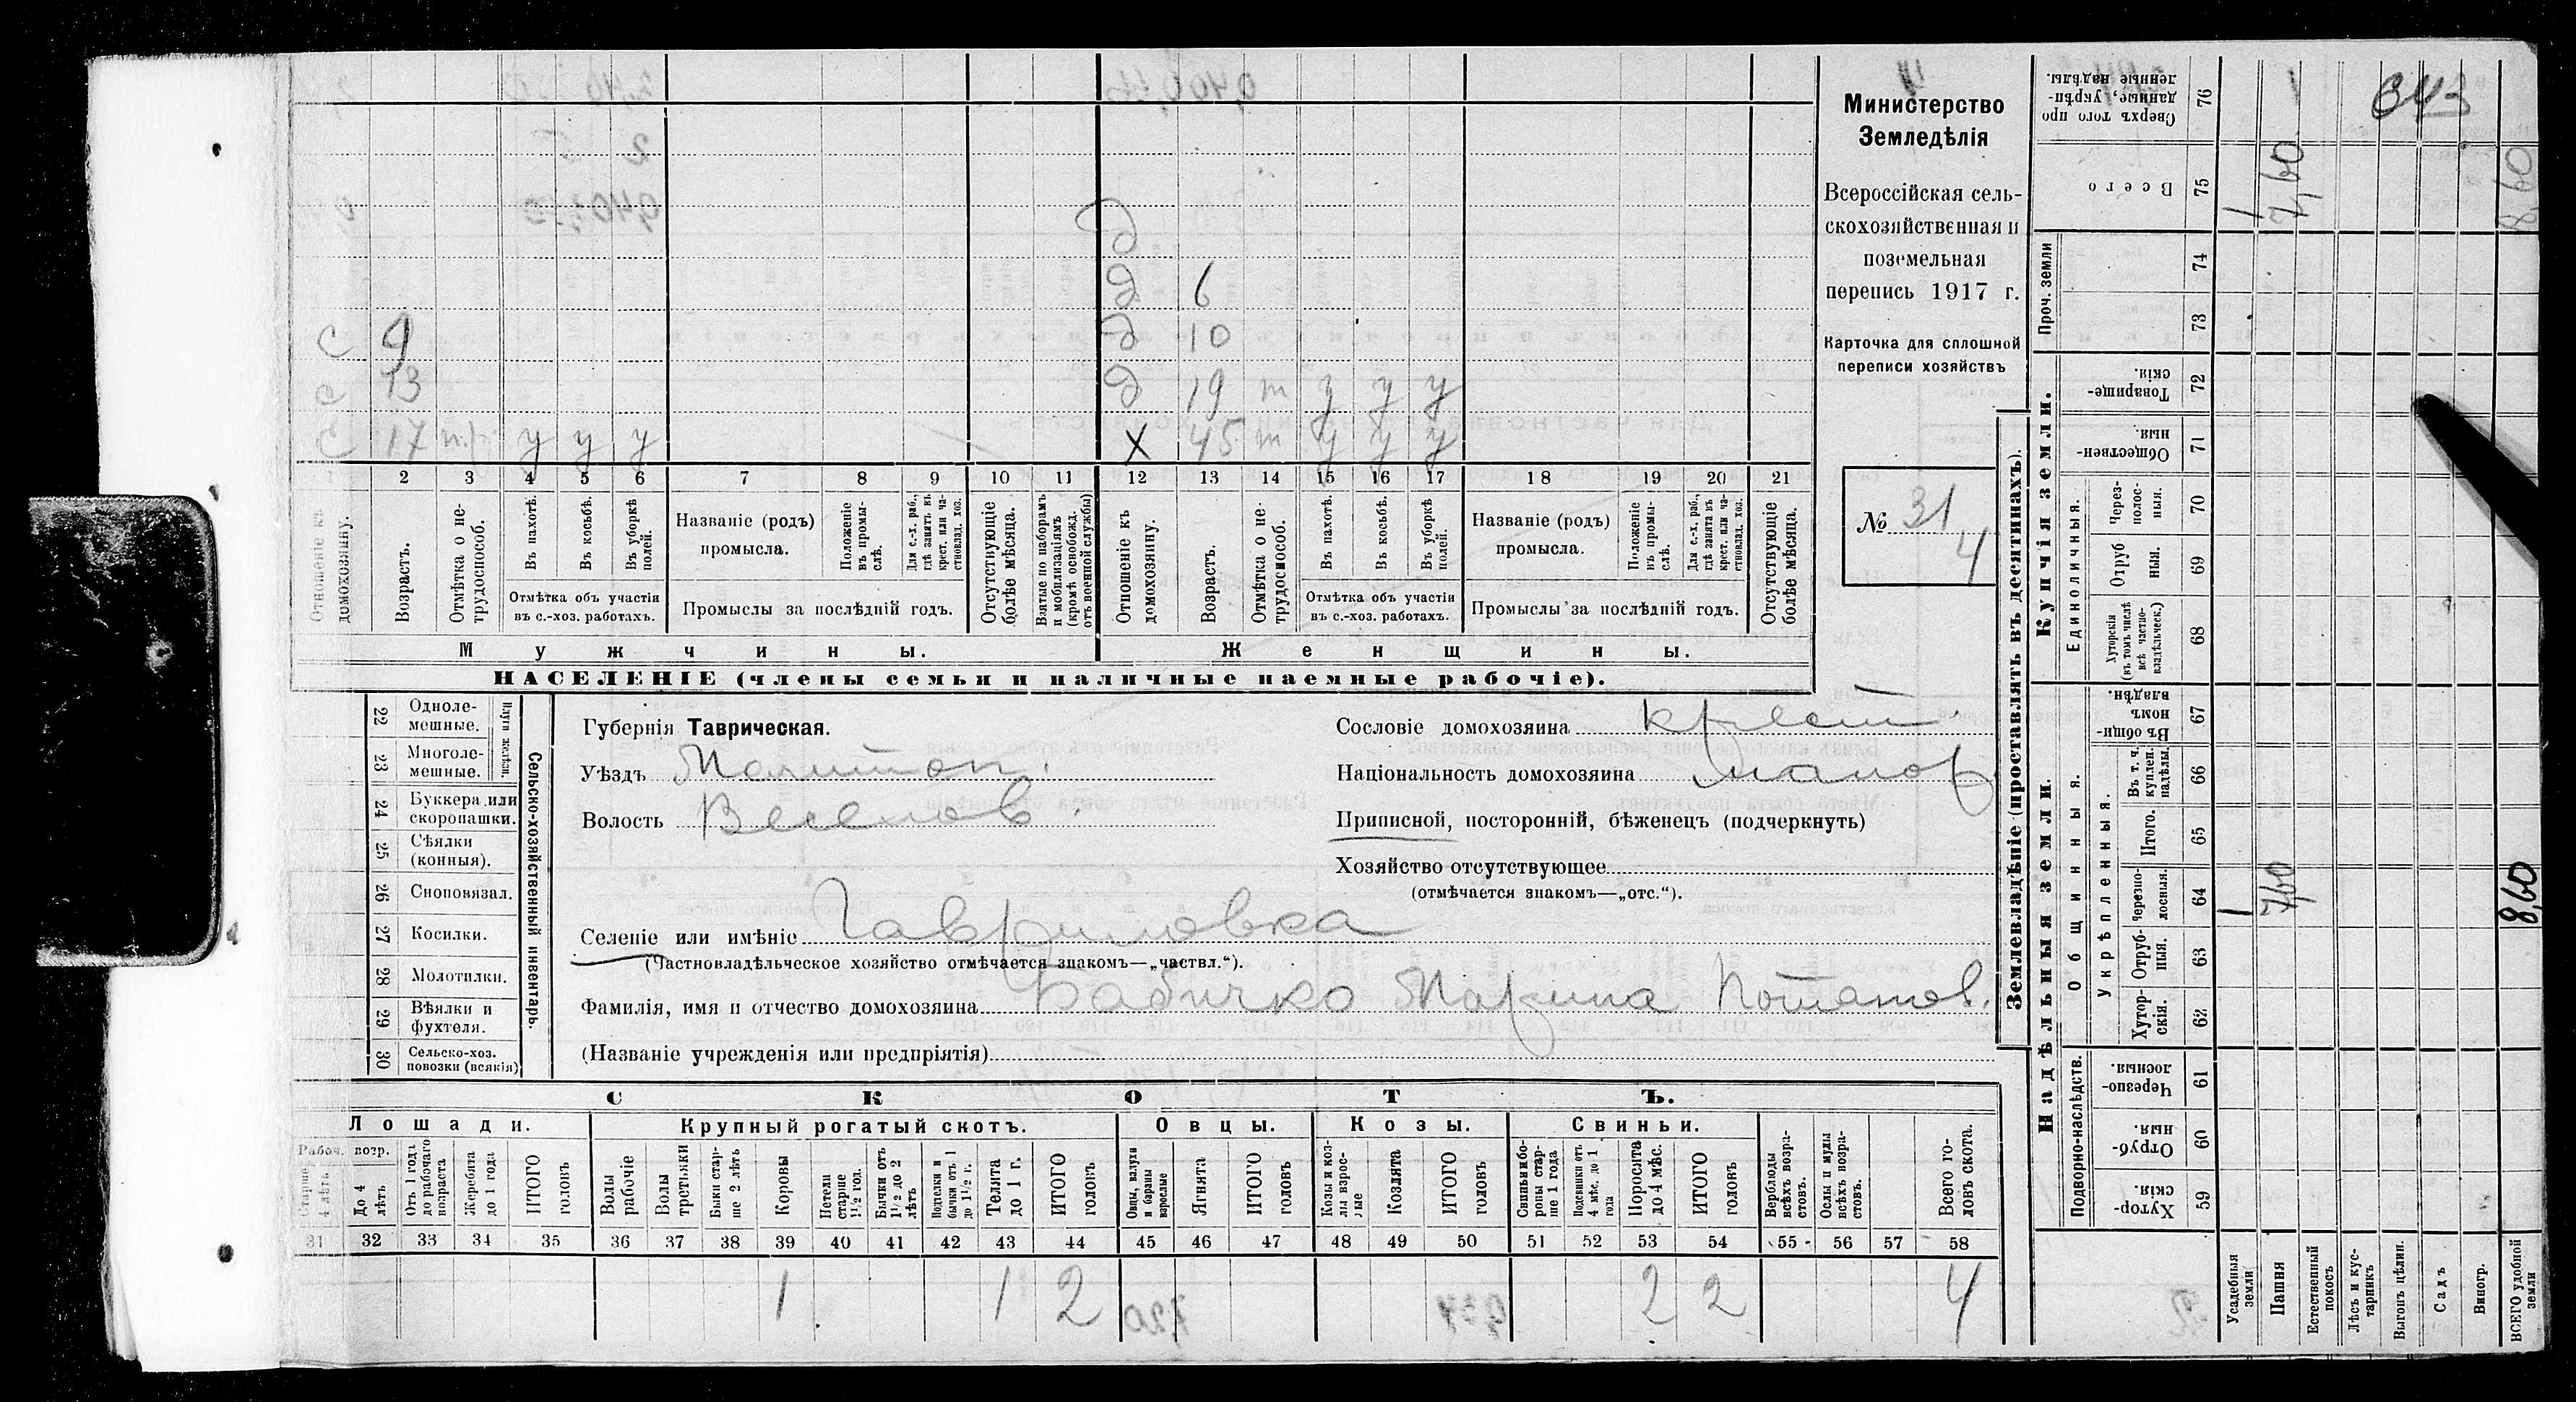 Министерство
Земледѣлія
Всероссійская сель-
скохозяйственная и
поземельная
перепись 1917 г.
Карточка для сплошной
переписи хозяйствъ
№ 31
4
343
с 9
с 13
с 17 п.р у у у
д
д 6
д 10
д 19 т у у у
х 45 т у у у
1 2 3 4 5 6 7 8 9 10 11 12 13 14 15 16 17 18 19 20 21
Отношеніе къ домохозяину.
Возрастъ.
Отмѣтка о не-трудоспособ.
Въ пахотѣ.
Въ косьбѣ.
Въ уборкѣ полей.
Отмѣтка объ участіи
въ с.-хоз. работахъ.
Названіе (родъ)
промысла.
Положеніе въ промы-слѣ.
Для с.-х. раб., гдѣ занятъ въ крест. или ча-стновлад. хоз.
Промыслы за послѣдній годъ.
Отсутствующіе болѣе мѣсяца.
Взятые по наборамъ и мобилизаціямъ (кромѣ освобожд. отъ военной службы)
Отношеніе къ домохозяину.
Возрастъ.
Отмѣтка о не-трудоспособ.
Въ пахотѣ.
Въ косьбѣ.
Въ уборкѣ полей.
Отмѣтка объ участіи
въ с.-хоз. работахъ.
Названіе (родъ)
промысла.
Положеніе въ промы-слѣ.
Для с.-х. раб., гдѣ занята въ крест. или ча-стновлад. хоз.
Промыслы за послѣдній годъ.
Отсутствующіе болѣе мѣсяца.
Мужчины.
Женщины.
НАСЕЛЕНІЕ (члены семьи и наличные наемные рабочіе).
Сельско-хозяйственный инвентарь.
Плуги желѣзн.
22 Одноле-мешные.
23 Многоле-мешные.
24 Буккера или скоропашки.
25 Сѣялки (конныя).
26 Сноповязал.
27 Косилки.
28 Молотилки.
29 Вѣялки и фухтеля.
30 Сельско-хоз. повозки (всякія)
Губернія Таврическая.
Уѣздъ Мелитоп.
Волость Веселов.
Сословіе домохозяина крест.
Національность домохозяина малор
Приписной, посторонній, бѣженецъ (подчеркнуть)
Хозяйство отсутствующее
(отмѣчается знакомъ—„отс.“).
Селеніе или имѣніе Гавриловка
(Частновладѣльческое хозяйство отмѣчается знакомъ—„частвл.“).
Фамилія, имя и отчество домохозяина Бабичко Марина Потапов.
(Названіе учрежденія или предпріятія)
СКОТЪ.
Лошади. Крупный рогатый скотъ. Овцы. Козы. Свиньи.
Рабоч. возр.
Старше 4 лѣтъ
До 4 лѣтъ
Отъ 1 года до рабочаго возраста
Жеребята до 1 года
ИТОГО головъ
Волы рабочіе
Волы третьяки
Быки стар-ше 2 лѣтъ
Коровы
Нетели старше 1½ год.
Бычки отъ 1½ до 2 лѣтъ
Подтелки и бычки отъ 1 до 1½ г.
Телята до 1 г.
ИТОГО головъ
Овцы, валухи и бараны взрослые
Ягнята
ИТОГО головъ
Козы и коз-лы взрос-лые
Козлята
ИТОГО головъ
Свиньи и бо-ровы стар-ше 1 года
Подсвинки отъ 4 мѣс. до 1 года
Поросята до 4 мѣс.
ИТОГО головъ
Верблюды всѣхъ возра-стовъ.
Ослы и мулы всѣхъ возра-стовъ.
Всего го-ловъ скота.
31 32 33 34 35 36 37 38 39 40 41 42 43 44 45 46 47 48 49 50 51 52 53 54 55 56 57 58
1 1 2 2 2 4
Землевладѣніе (проставлять въ десятинахъ).
Надѣльныя земли.
Купчія земли.
Проч. земли
Подворно-наслѣдств.
Общинныя.
Укрѣпленныя.
Единоличныя.
59 Хутор-скія.
60 Отруб-ныя.
61 Черезпо-лосныя.
62 Хутор-скія.
63 Отруб-ныя.
64 Черезпо-лосныя.
65 Итого.
66 Въ т. ч. куплен. надѣлы.
67 Въ общин-номъ владѣн.
68 Хуторскія (въ томъ числѣ всѣ частно-владѣльческ.)
69 Отруб ныя.
70 Через-полос-ныя.
71 Обществен-ныя.
72 Товарище-скія.
73
74
75 Всего
76 Сверхъ того про данные, укрѣп-ленные надѣлы.
Усадебныя земли
Пашня
Естественный покосъ
Лѣсъ и кус-тарникъ
Выгонъ цѣлин.
Садъ
Виногр.
ВСЕГО удобной земли
1 7,60 8,60
1 7,60 8,60